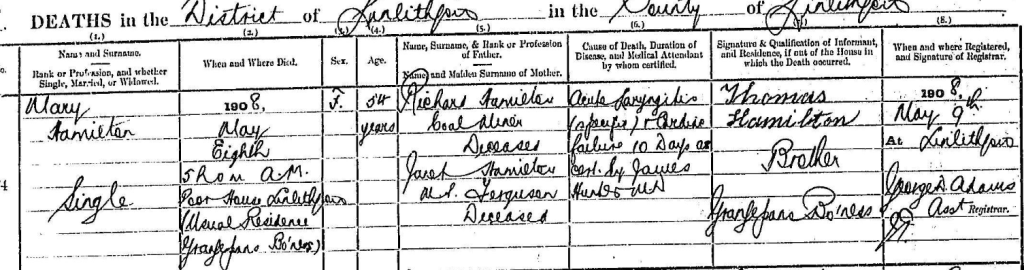 DEATHS in the District of Linlithgow in the County of Linlithgow
(1.) (2.) (3.) (4.) (5.) (6.) (7.) (8.)
No.
Name and Surname.
Rank or Profession, and whether
Single, Married, or Widowed.
When and Where Died.
Sex.
Age.
Name, Surname, & Rank or Profession
of Father.
Name, and Maiden Surname of Mother.
Cause of Death, Duration of
Disease, and Medical Attendant
by whom certified.
Signature & Qualification of Informant,
and Residence, if out of the House in
which the Death occurred.
When and where Registered,
and Signature of Registrar.
Mary
Hamilton
Single
1908,
May
Eighth
5h 0m A.M.
Poor House Linlithgow
(Usual Residence
Grangepans Bo'ness)
F.
54
years
Richard Hamilton
Coal Miner
Deceased
Janet Hamilton
M.S. Ferguson
Deceased
Acute Laryngitis
(specific) & Cardiac
failure 10 Days as
cert. by James
Hunter MD
Thomas
Hamilton
Brother
Grangepans Bo'ness
1908,
May 9th
At Linlithgow
George D. Adams
Asst Registrar.